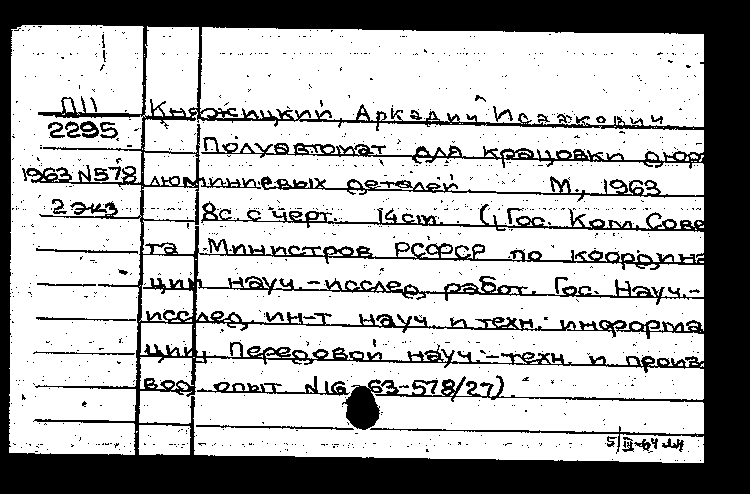 П11
2295
1963 N578
2 экз
Княжицкий, Аркадий Исаакович
Полуавтомат для крацовки дюра
люминиевых деталей. М., 1963
8с. с черт. 14cm. (Гос. Ком. Сове
та Министров РСФСР по координа
ции науч.-исслед. работ. Гос. Науч.-
исслед. ин-т науч. и техн. информа
ции. Передовой науч.-техн. и произ
вод. опыт N16-63-578/27).
5/III-64